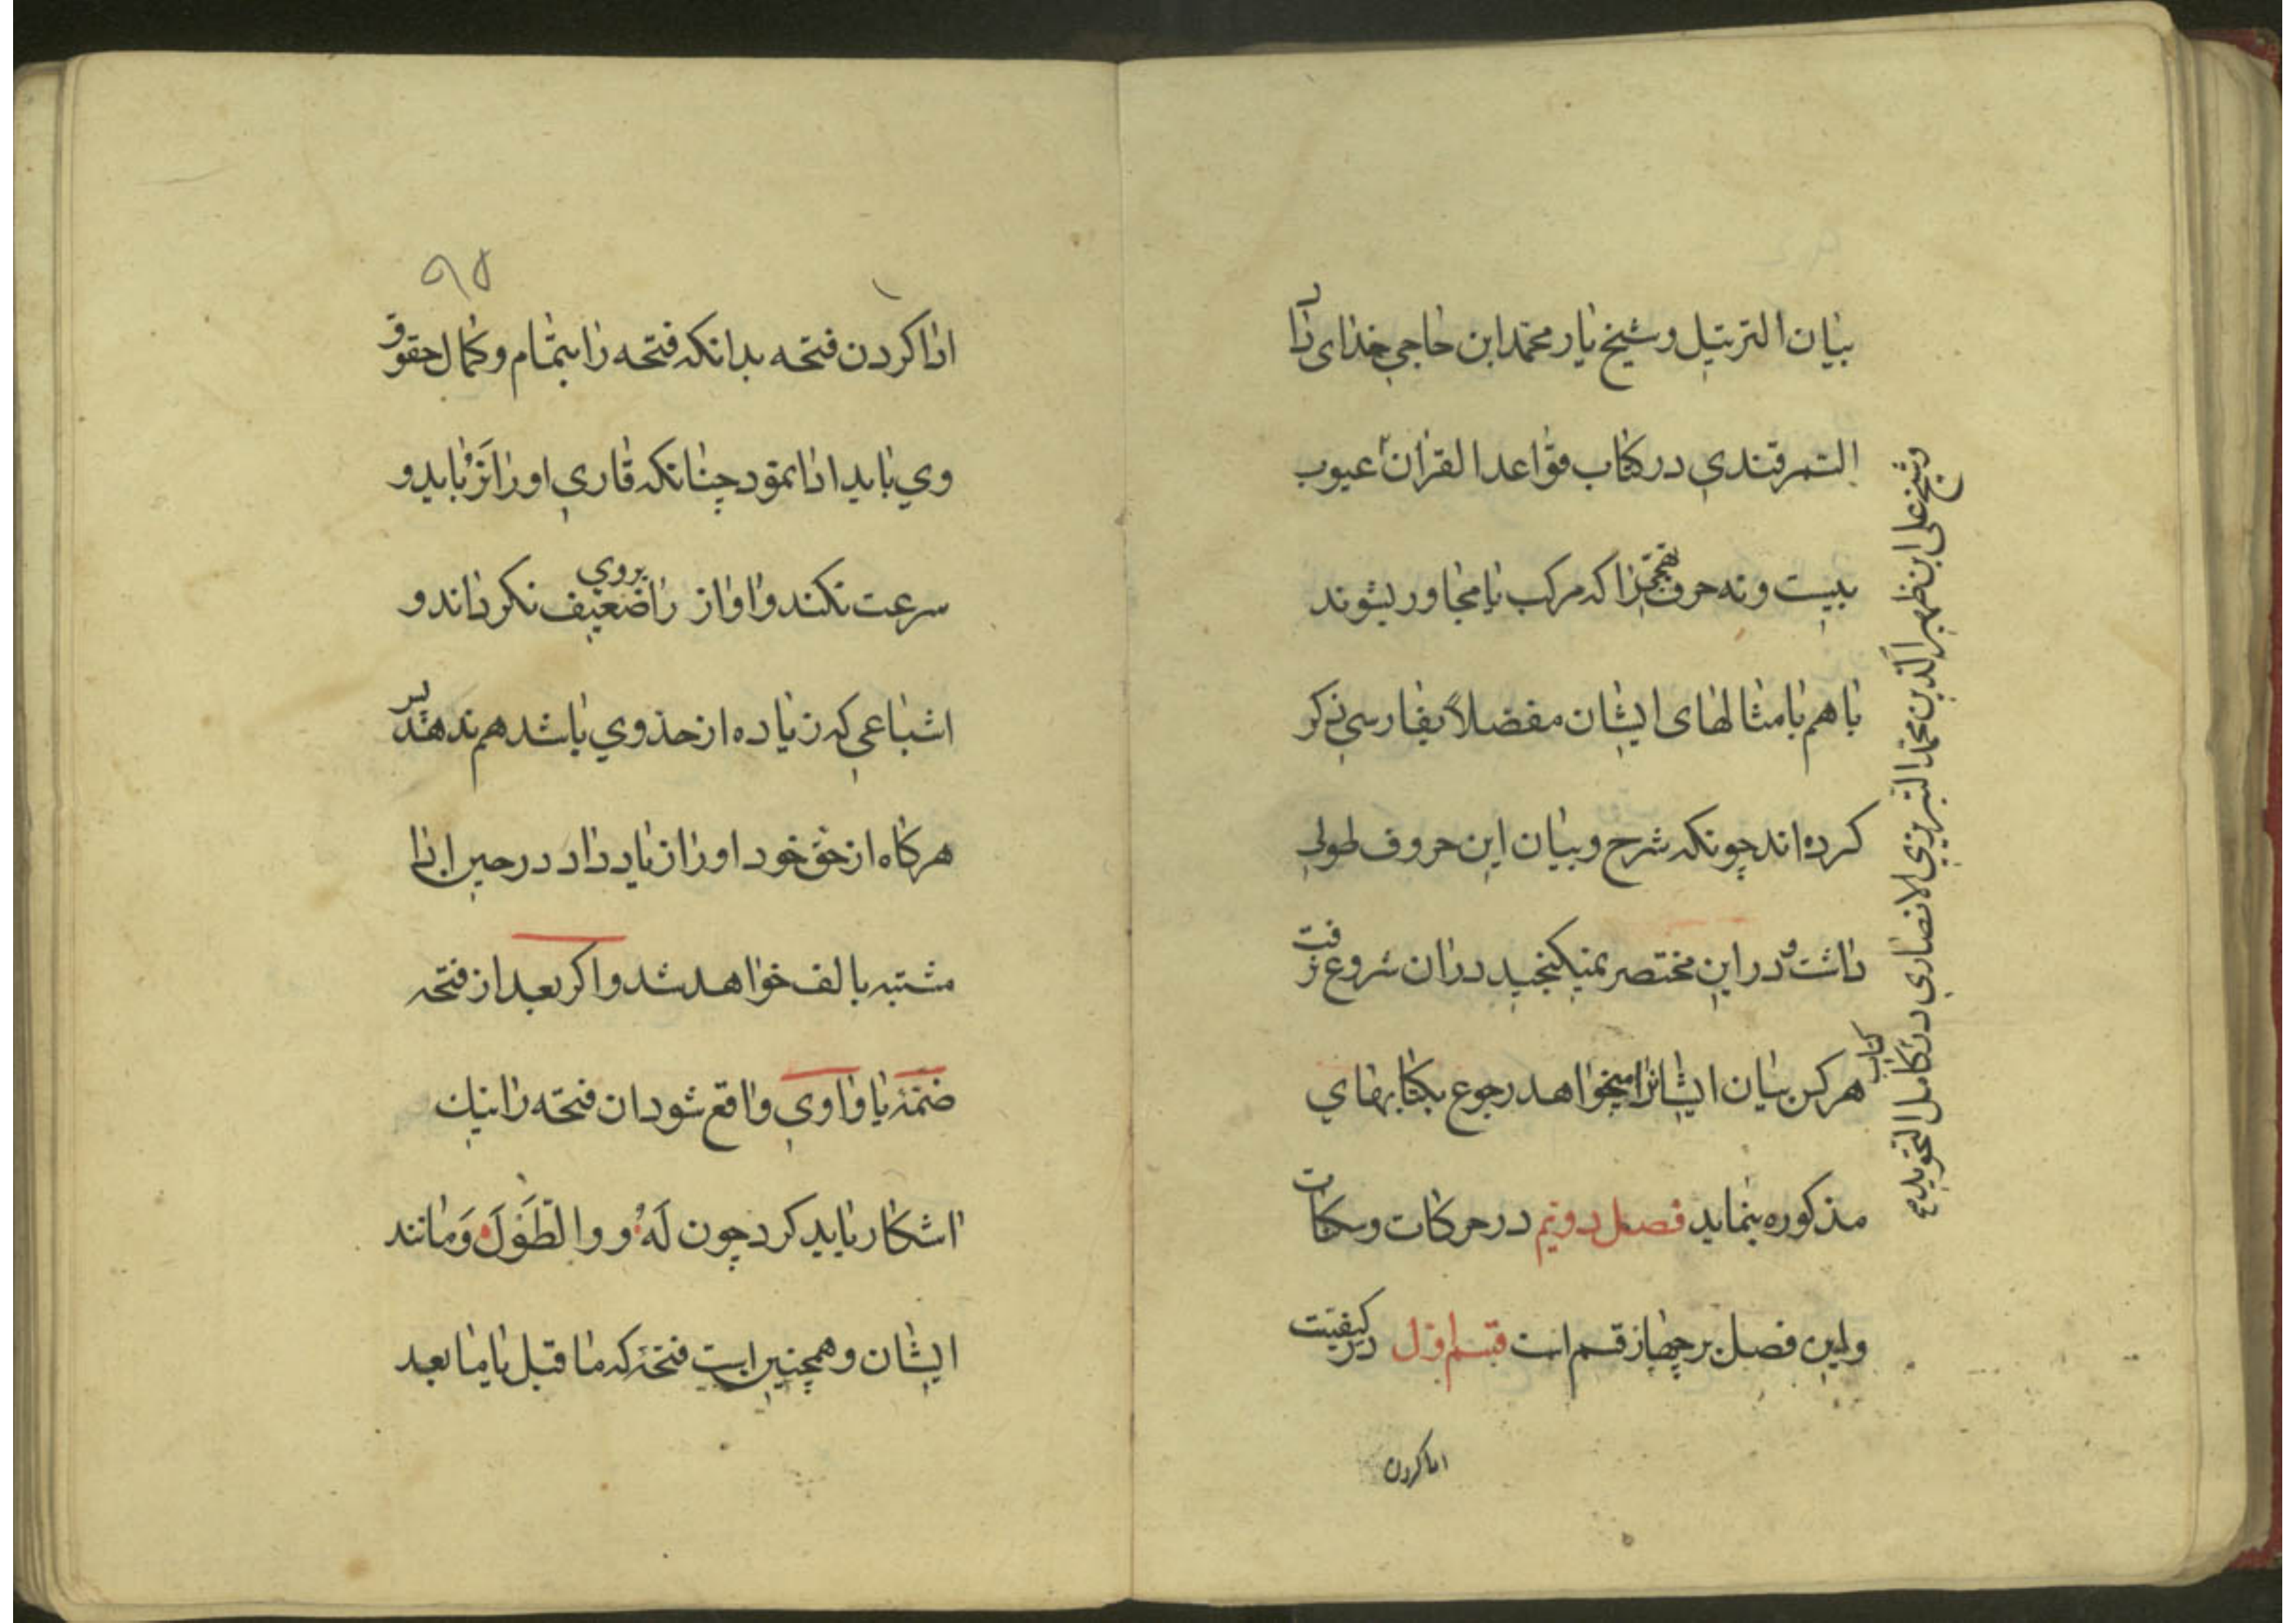 بیان الترتیل و شیخ یار محمد ابن حاجی خدای داد
السمرقندی در کتاب قواعد القرآن عیوب
بیست و نه حرف تهجی را که مرکب یا مجاور بشوند
با هم با مثالهای ایشان مفصلاً بفارسی ذکر
کرده اند چونکه شرح و بیان این حروف طولی
داشت و در این مختصر نمیکنجید در ان شروع نرفت
هر کس بیان ایشانرا میخواهد رجوع بکتابهای
مذکوره بنماید فصل دویم در حرکات و سکنات
و این فصل بر چهار قسم است قسم اول در کیفیت
ادا کردن
و شیخ علی ابن ظهیر الدین محمد التبریزی الانصاری در کتاب کامل التجوید
۹۵
ادا کردن فتحه بدانکه فتحه را بتمام و کمال حقوق
وی باید ادا نمود چنانکه قاری او را نرباید و
سرعت نکند و اواز را بروی ضعیف نکرداند و
اشباعی که زیاده از حد وی باشد هم ندهد پس
هرکاه از حق خود او را زیاد داد در حین ادا
مشتبه بالف خواهد شد و اکر بعد از فتحه
ضمّهٔ یا واوی واقع شود ان فتحه را نیك
اشکار باید کرد چون لَهُ و و الطَّوْلَ وَ مانند
ایشان و همچنین است فتحهٔ که ما قبل یا ما بعد